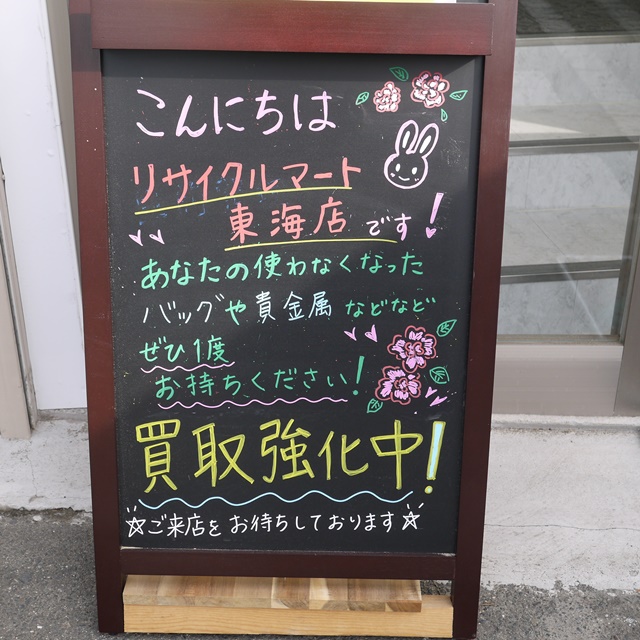 こんにちは
リサイクルマート
東海店です!
あなたの使わなくなった
バッグや貴金属などなど
ぜひ1度
お持ちください!
買取強化中!
☆ご来店をお待ちしております☆